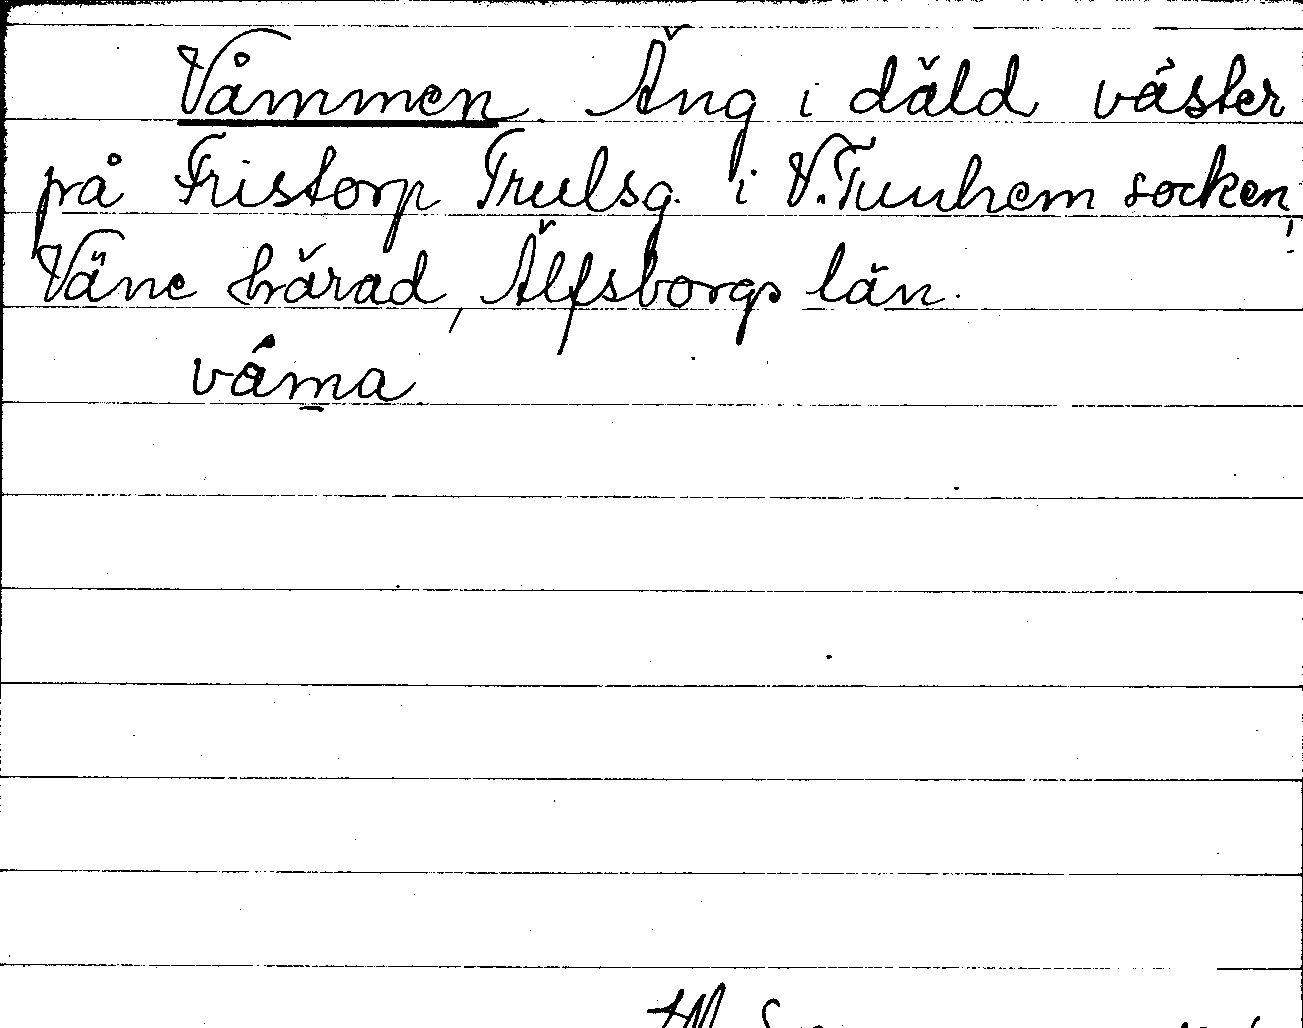 Våmmen. Äng i däld väster
på Fristorp Trulsg. i V. Tunhem socken,
Väne härad, Älfsborgs län.
våma